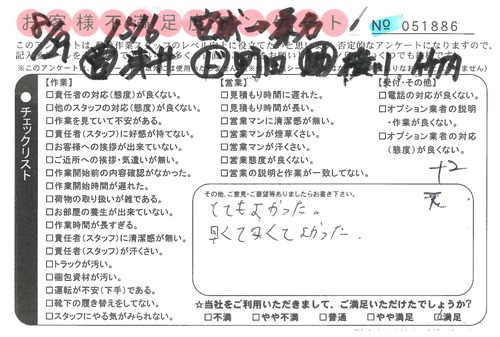 お客様不満足度アンケート
№ 051886
チェックリスト
【作業】
□責任者の対応(態度)が良くない。
□他のスタッフの対応(態度)が良くない。
□作業を見ていて不安がある。
□責任者(スタッフ)に好感が持てない。
□お客様への挨拶が出来ていない。
□ご近所への挨拶・気遣いが無い。
□作業開始前の内容確認がなかった。
□作業開始時間が遅れた。
□荷物の取り扱いが雑である。
□お部屋の養生が出来ていない。
□作業時間が長すぎる。
□責任者(スタッフ)に清潔感が無い。
□責任者(スタッフ)が汗くさい。
□トラックが汚い。
□梱包資材が汚い。
□運転が不安(下手)である。
□靴下の履き替えをしてない。
□スタッフにやる気がみられない。
【営業】
□見積もり時間に遅れた。
□見積もり時間が長い。
□営業マンに清潔感が無い。
□営業マンが煙草くさい。
□営業マンが汗くさい。
□営業態度が良くない。
□営業の説明と作業が一致してない。
【受付・その他】
□電話の対応が良くない。
□オプション業者の説明・作業が良くない。
□オプション業者の対応(態度)が良くない。
+2
その他、ご意見・ご要望等ありましたらお書き下さい。
とてもよかった。
早くて安くてよかった.
☆当社をご利用いただきまして、ご満足いただけたでしょうか?
□不満 □やや不満 □普通 □やや満足 □満足